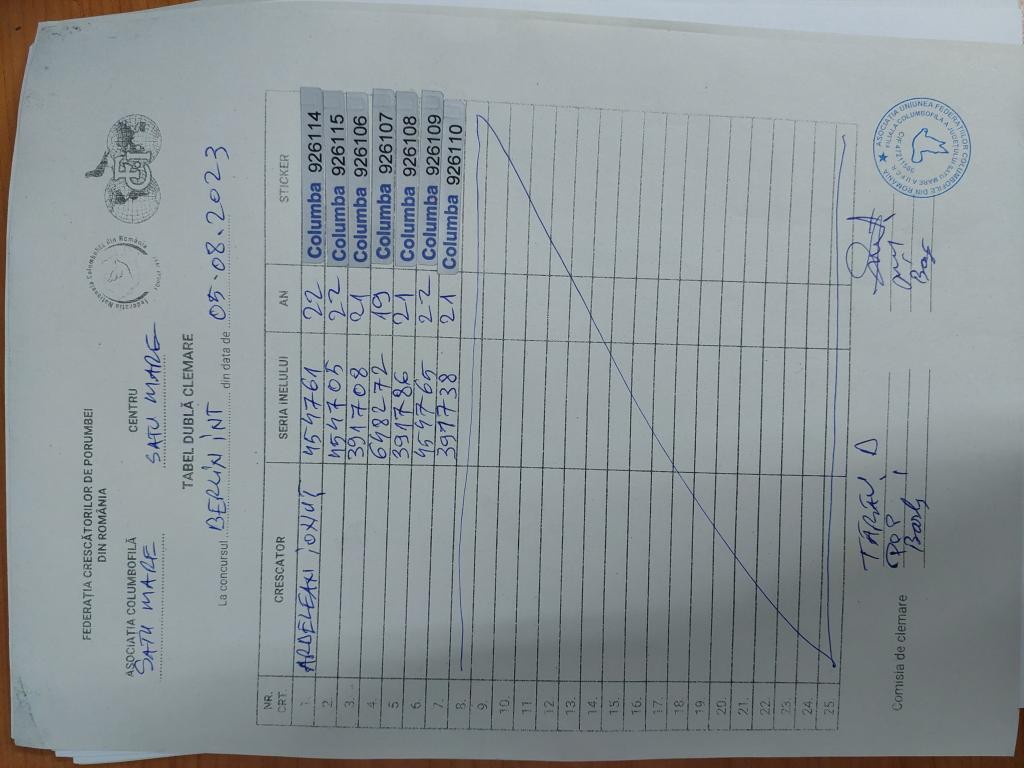 FEDERAȚIA CRESCĂTORILOR DE PORUMBEI
DIN ROMÂNIA
Federația Națională Columbofilă din România
ASOCIAȚIA COLUMBOFILĂ
SATU MARE
CENTRU
SATU MARE
TABEL DUBLĂ CLEMARE
La concursul BERLIN INT din data de 05.08.2023
NR. CRT. CRESCATOR SERIA INELULUI AN STICKER
1. ARDELEAN IONUȚ 454761 22 Columba 926114
2. 454705 22 Columba 926115
3. 391708 21 Columba 926106
4. 648272 19 Columba 926107
5 391786 21 Columba 926108
6. 454765 22 Columba 926109
7. 391738 21 Columba 926110
8.
9.
10.
11
12.
13.
14.
15.
16.
17.
18.
19.
20.
21.
22.
23.
24.
25.
Comisia de clemare
TARȚA D
POP
ASOCIAȚIA UNIUNEA FEDERAȚIILOR COLUMBOFILE DIN ROMÂNIA
FILIALA COLUMBOFILĂ A JUDEȚULUI SATU MARE